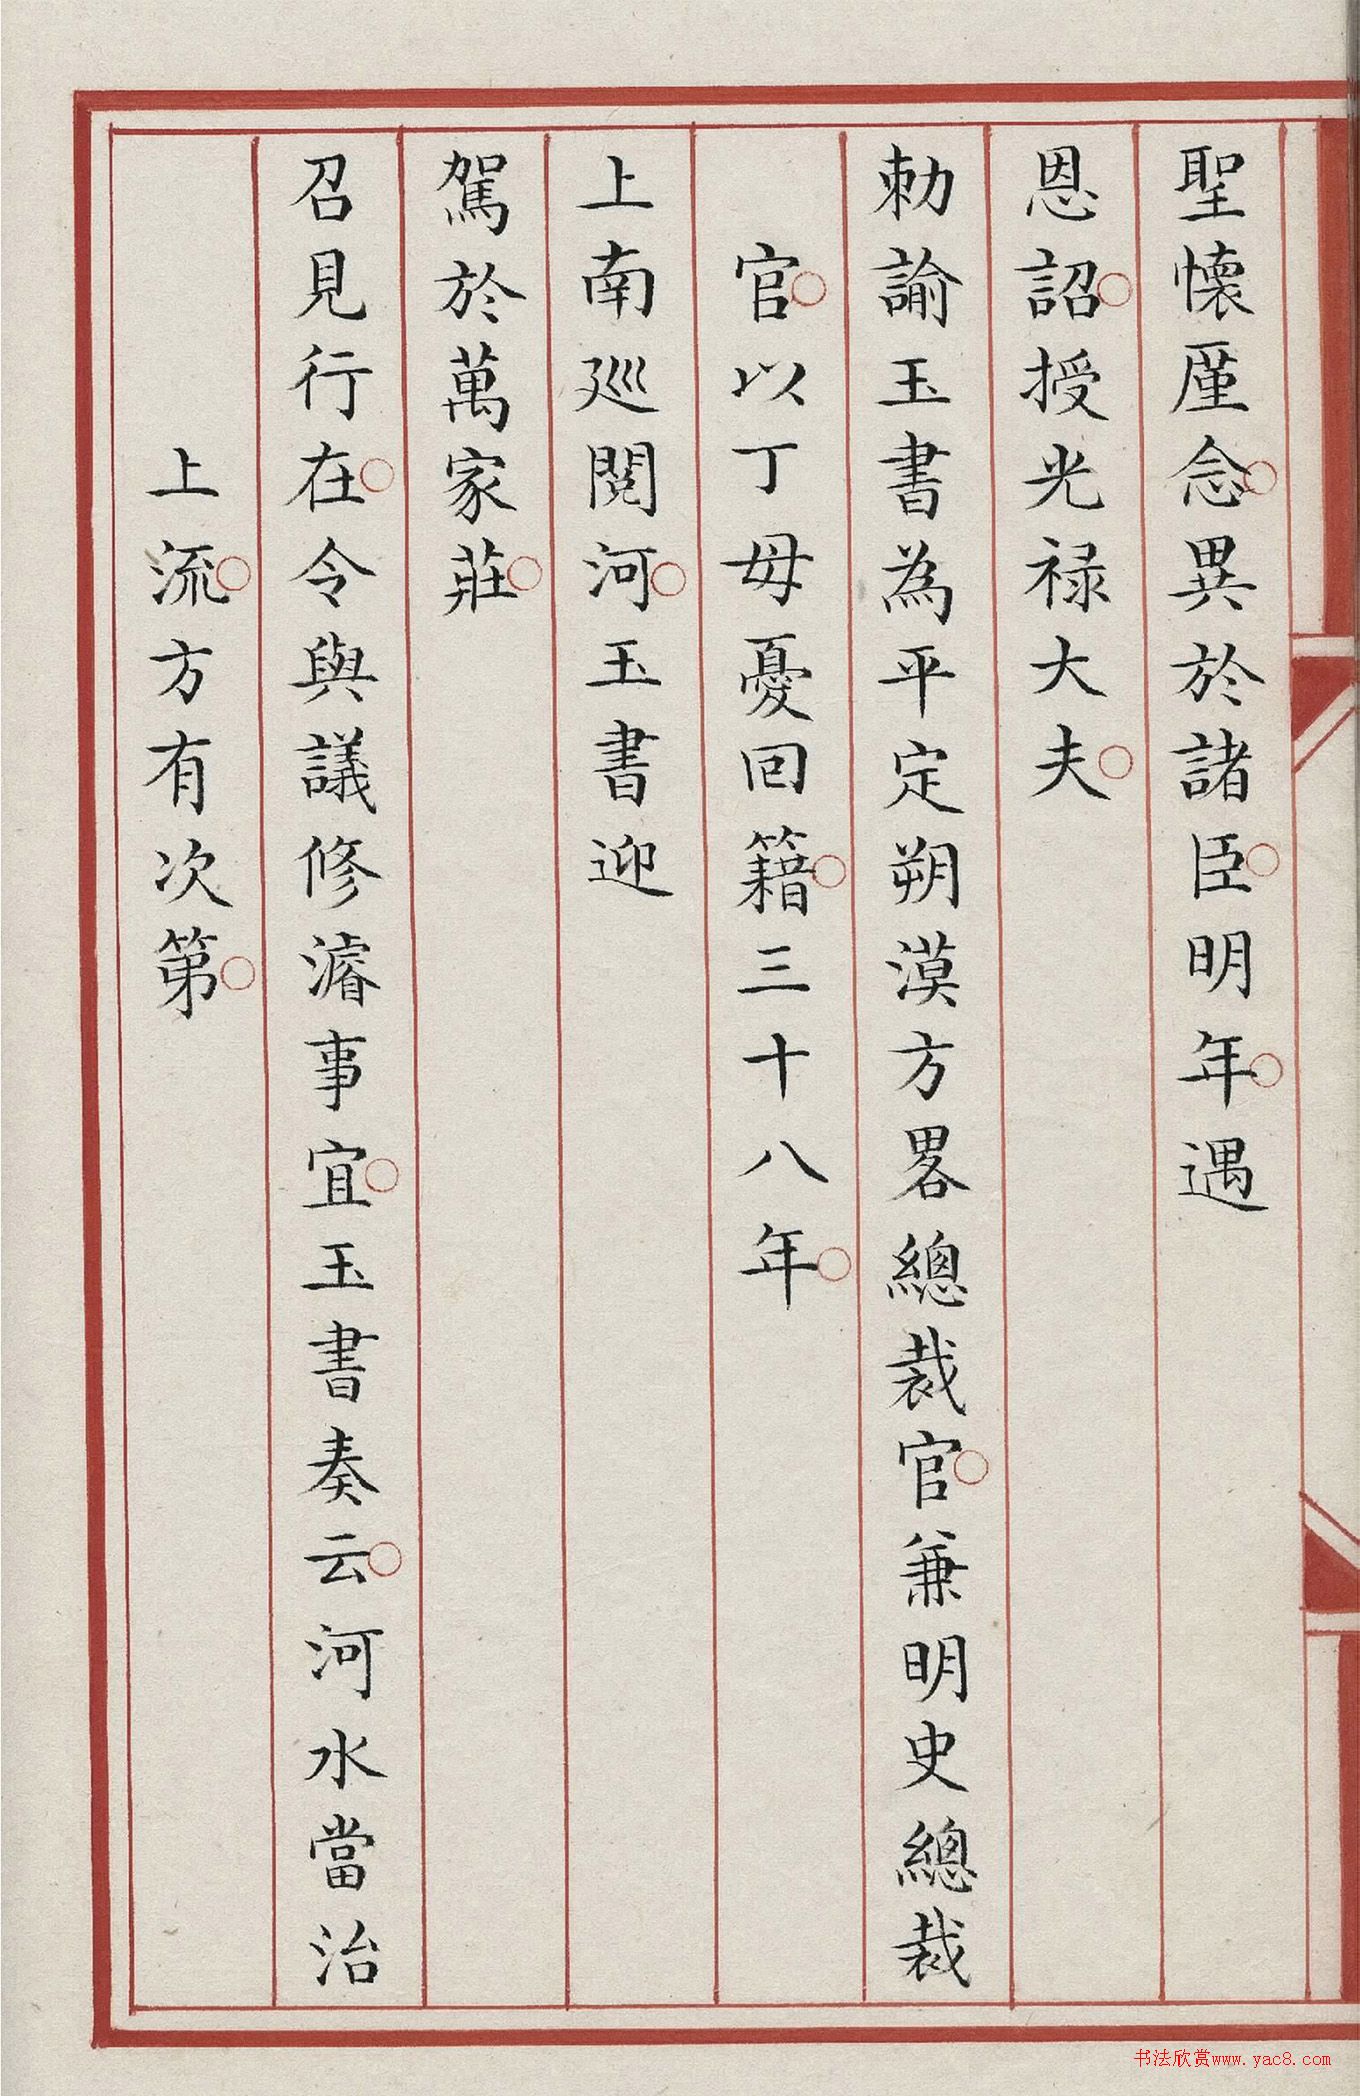 聖懷廑念○異於諸臣○明年○遇
恩詔○授光禄大夫○
勅諭玉書為平定朔漠方畧總裁官○兼明史總裁
官○以丁母憂回籍○三十八年○
上南廵閱河○玉書迎
駕於萬家莊○
召見行在○令與議修濬事宜○玉書奏云○河水當治
上流○方有次第○
书法欣赏www.yac8.com